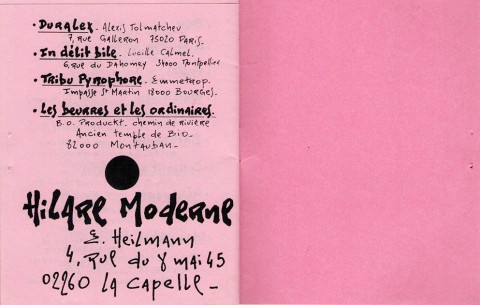 • Duralex. Alexis Tolmatchev
7, rue Galleron 75020 Paris.
• En délit bile. Lucille Calmel.
6, rue du Dahomey 34000 Montpellier
• Tribu Pyrophore. Emmetrop.
Impasse St Martin 18000 Bourges.
• Les beurres et les ordinaires.
B.O. Produckt. chemin de rivière
Ancien temple de Bio-
82000 Montauban-
Hilare Moderne
E. Heilmann
4, rue du 8 mai 45
02260 La Capelle-